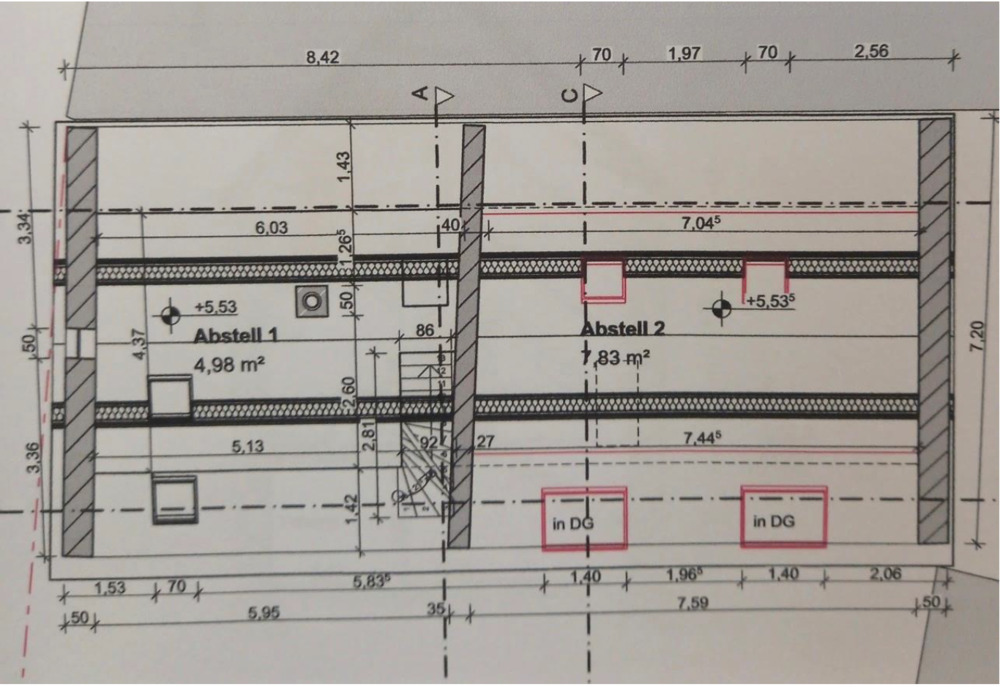 8,42
70
1,97
70
2,56
A
C
1,43
3,34
6,03
40
7,04⁵
1,26⁵
+5,53
50
+5,53⁵
50
Abstell 1
86
Abstell 2
4,37
4,98 m²
7,83 m²
7,20
2,60
3,36
5,13
2,81
92
27
7,44⁵
1,42
in DG
in DG
1,53
70
5,83⁵
1,40
1,96⁵
1,40
2,06
50
5,95
35
7,59
50